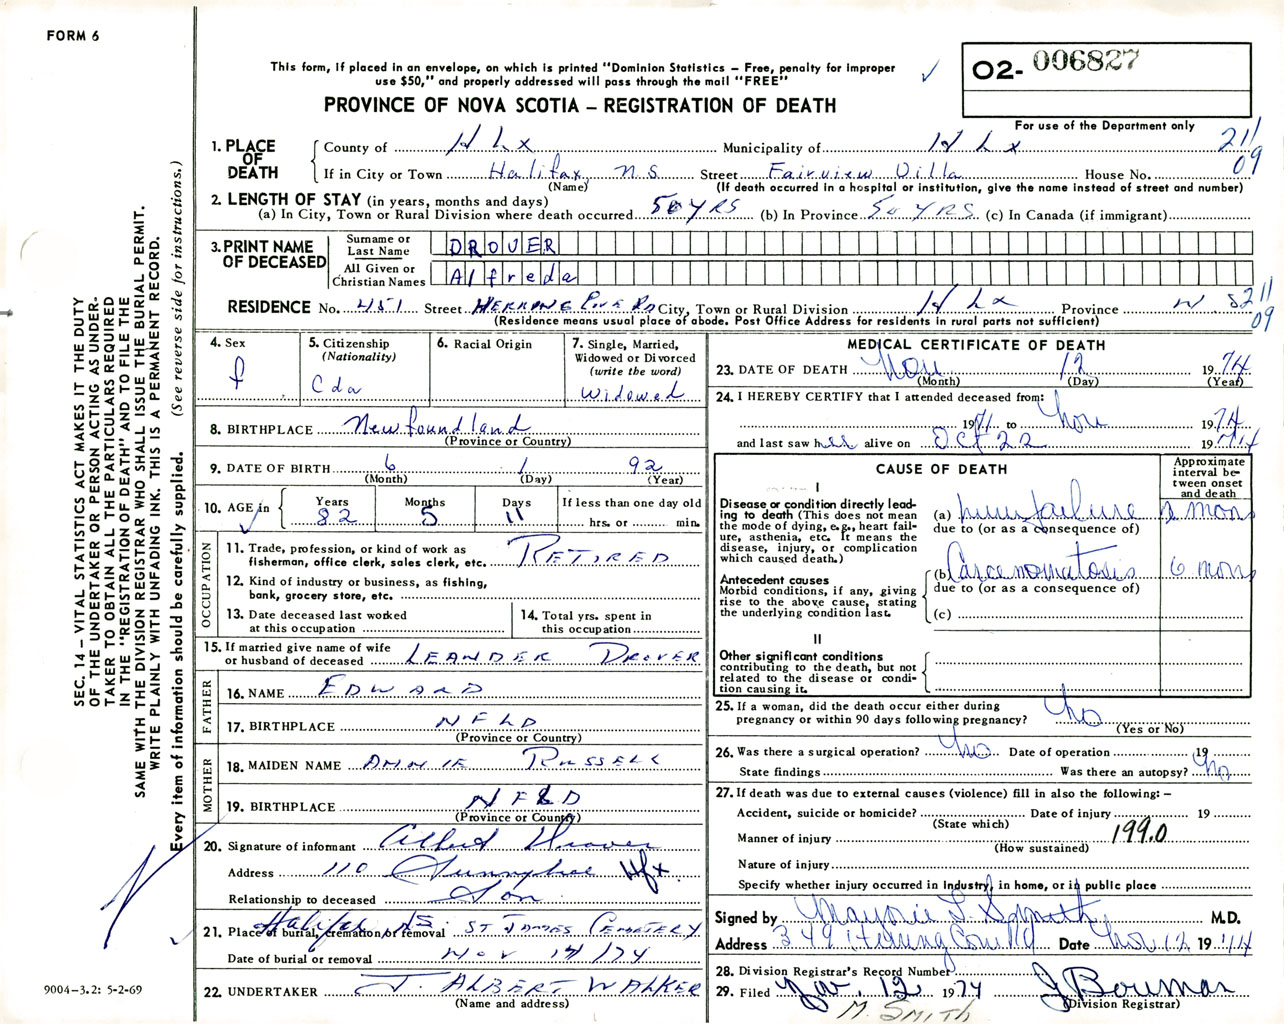 FORM 6
This form, if placed in an envelope, on which is printed "Dominion Statistics — Free, penalty for improper
use $50," and properly addressed will pass through the mail "FREE"
PROVINCE OF NOVA SCOTIA – REGISTRATION OF DEATH
O2- 006827
For use of the Department only
211
09
1. PLACE OF DEATH
County of Hfx Municipality of Hfx
If in City or Town Halifax, N.S. Street Fairview Villa House No.
(Name) (If death occurred in a hospital or institution, give the name instead of street and number)
2. LENGTH OF STAY (in years, months and days)
(a) In City, Town or Rural Division where death occurred 50 YRS (b) In Province 50 YRS. (c) In Canada (if immigrant)
3. PRINT NAME OF DECEASED
Surname or Last Name DROVER
All Given or Christian Names Alfreda
RESIDENCE No. 451 Street HERRING COVE RD City, Town or Rural Division Hfx Province N.S.
211
09
(Residence means usual place of abode. Post Office Address for residents in rural parts not sufficient)
4. Sex
f
5. Citizenship
(Nationality)
Cda
6. Racial Origin
7. Single, Married,
Widowed or Divorced
(write the word)
Widowed
8. BIRTHPLACE Newfoundland
(Province or Country)
9. DATE OF BIRTH 6 1 92
(Month) (Day) (Year)
10. AGE in
Years Months Days
82 5 11
If less than one day old
hrs. or min.
OCCUPATION
11. Trade, profession, or kind of work as
fisherman, office clerk, sales clerk, etc. RETIRED
12. Kind of industry or business, as fishing,
bank, grocery store, etc.
13. Date deceased last worked
at this occupation
14. Total yrs. spent in
this occupation
15. If married give name of wife
or husband of deceased LEANDER DROVER
FATHER
16. NAME EDWARD
17. BIRTHPLACE NFLD
(Province or Country)
MOTHER
18. MAIDEN NAME ANNIE RUSSELL
19. BIRTHPLACE NFLD
(Province or Country)
20. Signature of informant Drover
Address 110 Hfx.
Relationship to deceased Son
21. Place of burial, cremation or removal Halifax NS ST JAMES CEMETERY
Date of burial or removal NOV 14/74
22. UNDERTAKER J. ALBERT WALKER
(Name and address)
MEDICAL CERTIFICATE OF DEATH
23. DATE OF DEATH Nov 12 1974
(Month) (Day) (Year)
24. I HEREBY CERTIFY that I attended deceased from:
1971 to Nov 1974
and last saw her alive on Oct 22 1974
CAUSE OF DEATH
Approximate
interval be-
tween onset
and death
I
Disease or condition directly lead-
ing to death (This does not
mean the mode of dying, e.g., heart fail-
ure, asthenia, etc. It means the
disease, injury, or complication
which caused death.)
(a) failure 2 mons
due to (or as a consequence of)
Antecedent causes
Morbid conditions, if any, giving
rise to the above cause, stating
the underlying condition last.
(b) Carcenomatosis 6 mons
due to (or as a consequence of)
(c)
II
Other significant conditions
contributing to the death, but not
related to the disease or condi-
tion causing it.
25. If a woman, did the death occur either during
pregnancy or within 90 days following pregnancy? no
(Yes or No)
26. Was there a surgical operation? no Date of operation 19
State findings Was there an autopsy? no
27. If death was due to external causes (violence) fill in also the following: —
Accident, suicide or homicide? Date of injury 19
(State which)
Manner of injury 199.0
(How sustained)
Nature of injury
Specify whether injury occurred in Industry, in home, or in public place
Signed by Marjorie L. Smith M.D.
Address 349 Herring Cove Rd Date Nov 12 1974
28. Division Registrar's Record Number
29. Filed Nov. 12 1974 J Bowman
M. SMITH (Division Registrar)
SEC. 14 – VITAL STATISTICS ACT MAKES IT THE DUTY
OF THE UNDERTAKER OR PERSON ACTING AS UNDER-
TAKER TO OBTAIN ALL THE PARTICULARS REQUIRED
IN THE "REGISTRATION OF DEATH" AND TO FILE THE
SAME WITH THE DIVISION REGISTRAR WHO SHALL ISSUE THE BURIAL PERMIT.
WRITE PLAINLY WITH UNFADING INK. THIS IS A PERMANENT RECORD.
Every item of information should be carefully supplied. (See reverse side for instructions.)
9004–3.2: 5-2-69